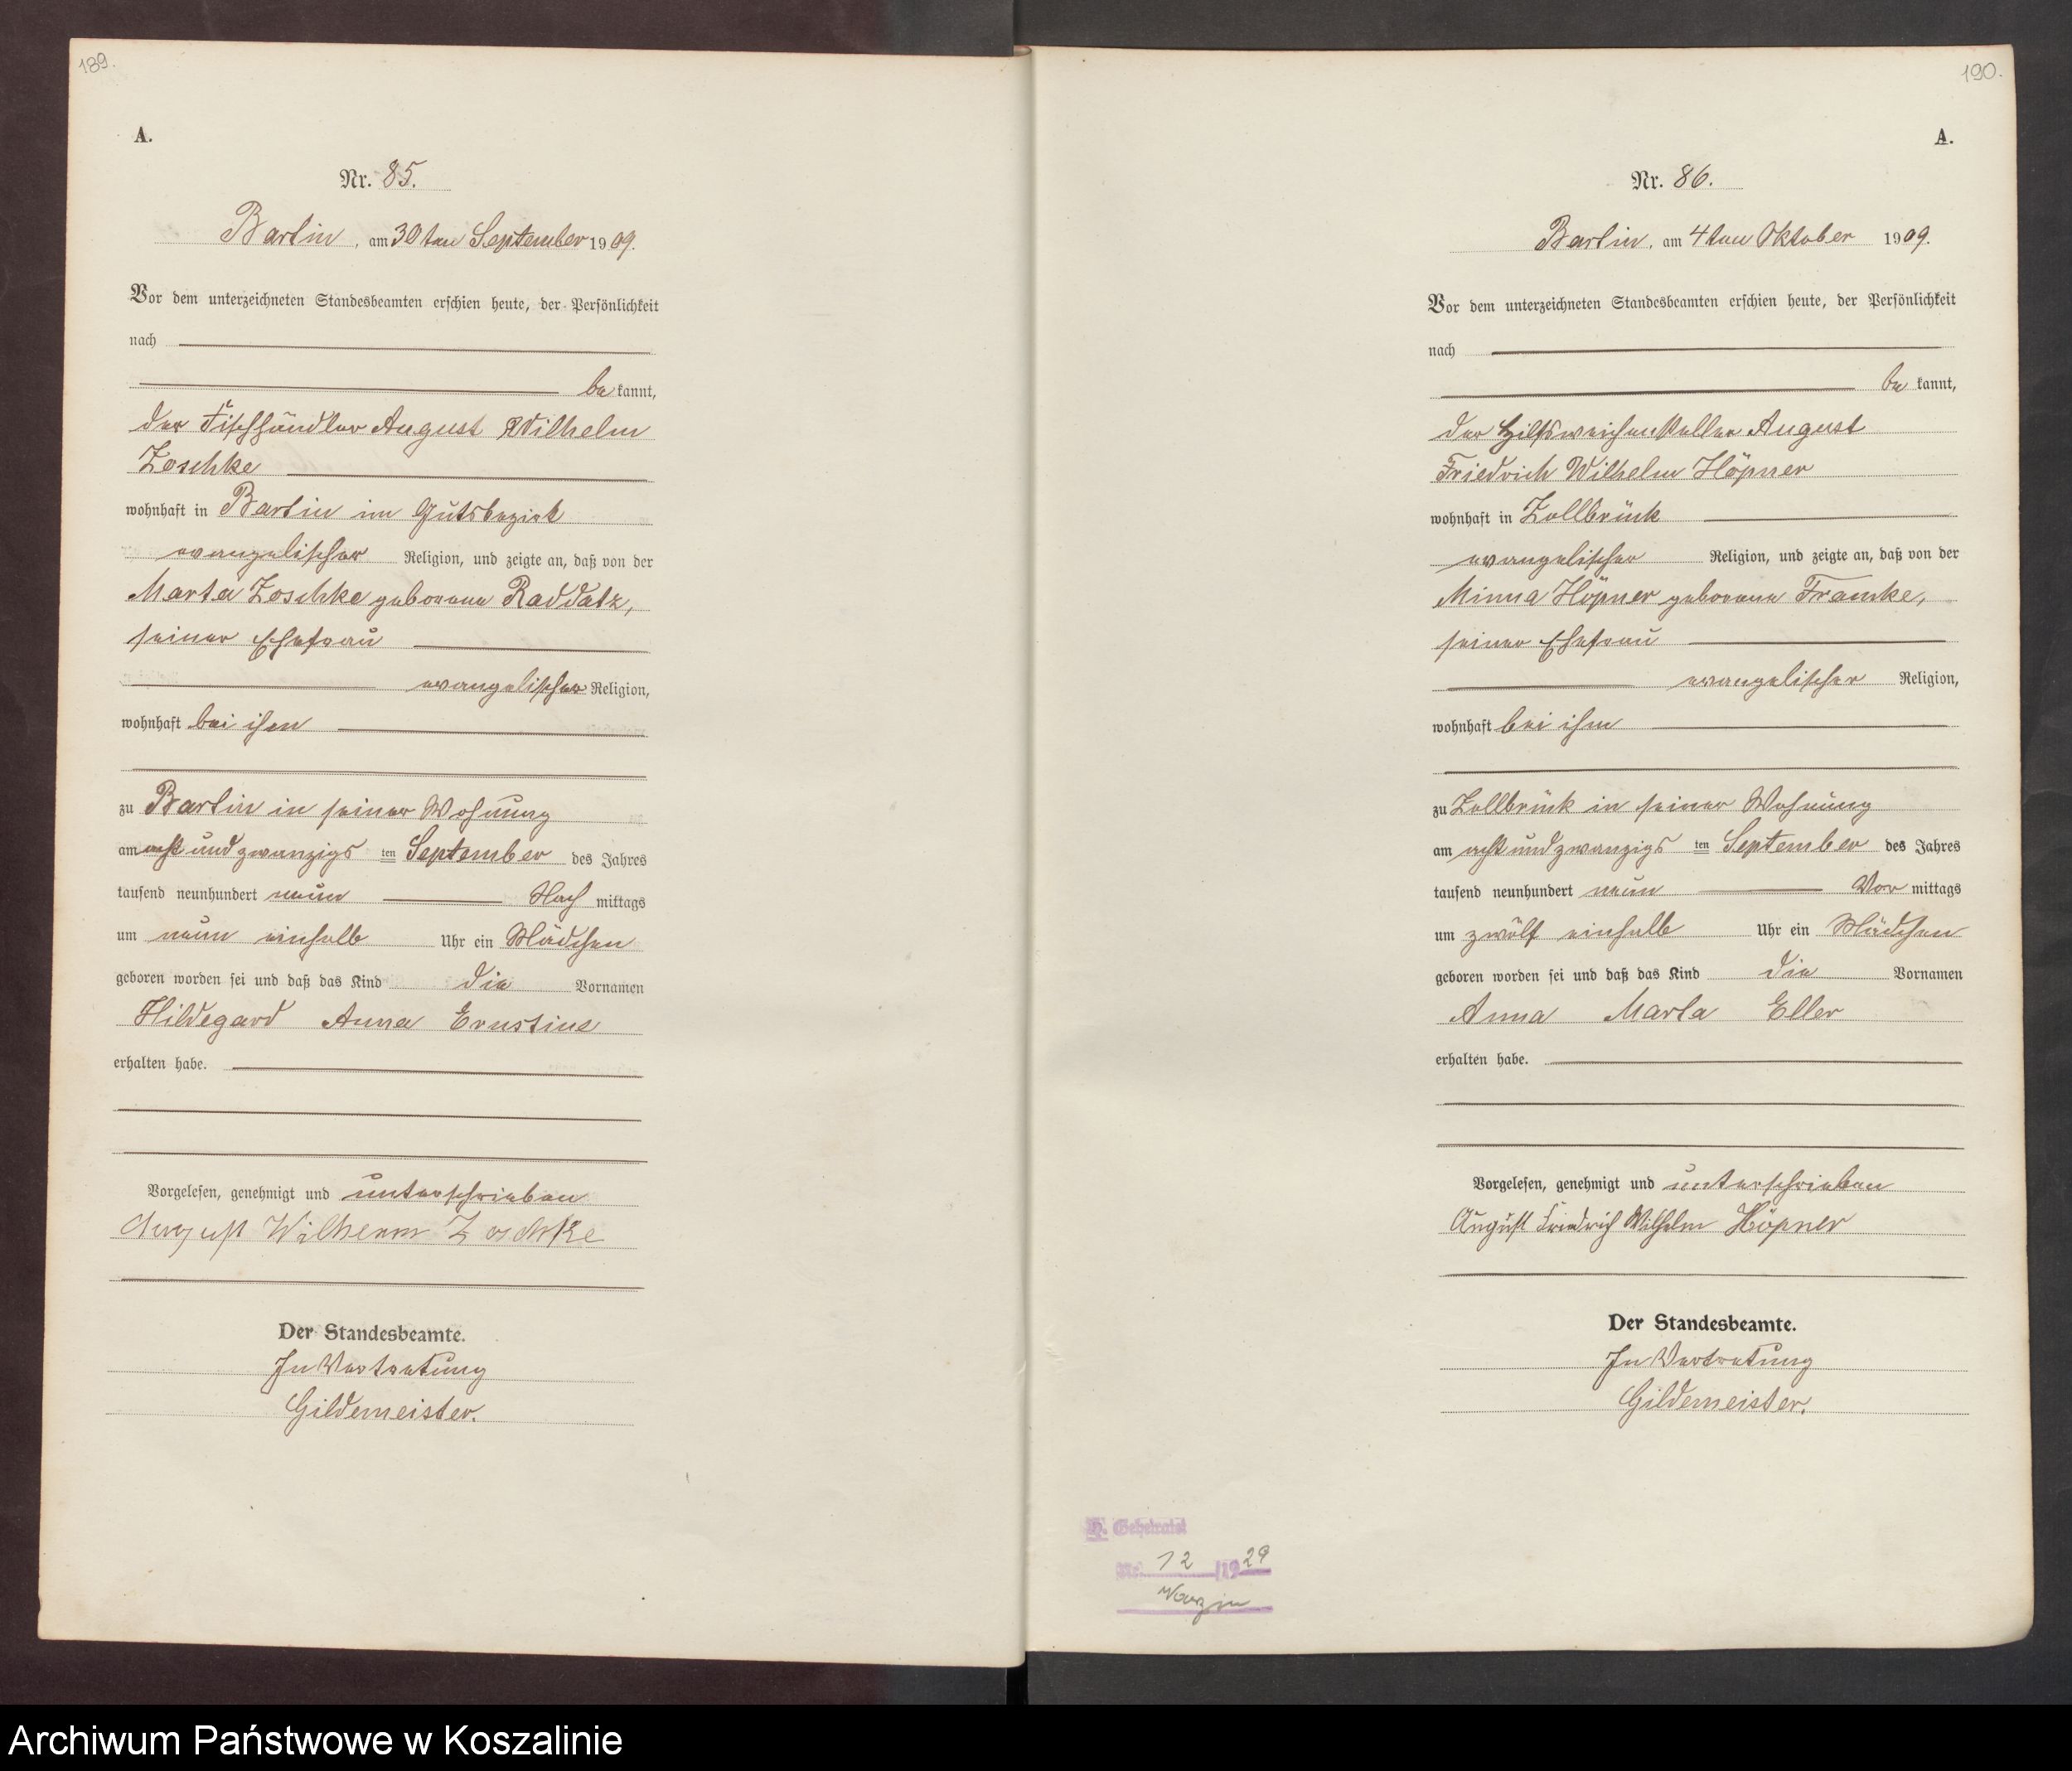 189.
A.
Nr. 85.
Bartin, am 30ten September 1909.
Vor dem unterzeichneten Standesbeamten erschien heute, der Persönlichkeit
nach
bekannt,
der Fischhändler August Wilhelm
Zoschke
wohnhaft in Bartin im Gutsbezirk
evangelischer Religion, und zeigte an, daß von der
Marta Zoschke geborene Raddatz,
seiner Ehefrau
evangelischer Religion,
wohnhaft bei ihm
zu Bartin in seiner Wohnung
am acht und zwanzigsten September des Jahres
tausend neunhundert neun Nachmittags
um neun einhalb Uhr ein Mädchen
geboren worden sei und daß das Kind die Vornamen
Hildegard Anna Ernstine
erhalten habe.
Vorgelesen, genehmigt und unterschrieben
August Wilhelm Zoschke
Der Standesbeamte.
In Vertretung
Gildemeister.
190.
A.
Nr. 86.
Bartin, am 4ten Oktober 1909.
Vor dem unterzeichneten Standesbeamten erschien heute, der Persönlichkeit
nach
bekannt,
der Hilfsweichensteller August
Friedrich Wilhelm Höpner
wohnhaft in Zollbrück
evangelischer Religion, und zeigte an, daß von der
Minna Höpner geborene Framke,
seiner Ehefrau
evangelischer Religion,
wohnhaft bei ihm
zu Zollbrück in seiner Wohnung
am acht und zwanzigsten September des Jahres
tausend neunhundert neun Vormittags
um zwölf einhalb Uhr ein Mädchen
geboren worden sei und daß das Kind die Vornamen
Anna Marta Eller
erhalten habe.
Vorgelesen, genehmigt und unterschrieben
August Friedrich Wilhelm Höpner
Der Standesbeamte.
In Vertretung
Gildemeister.
H. Geheiratet
Nr. 12 /1929
Varzin
Archiwum Państwowe w Koszalinie